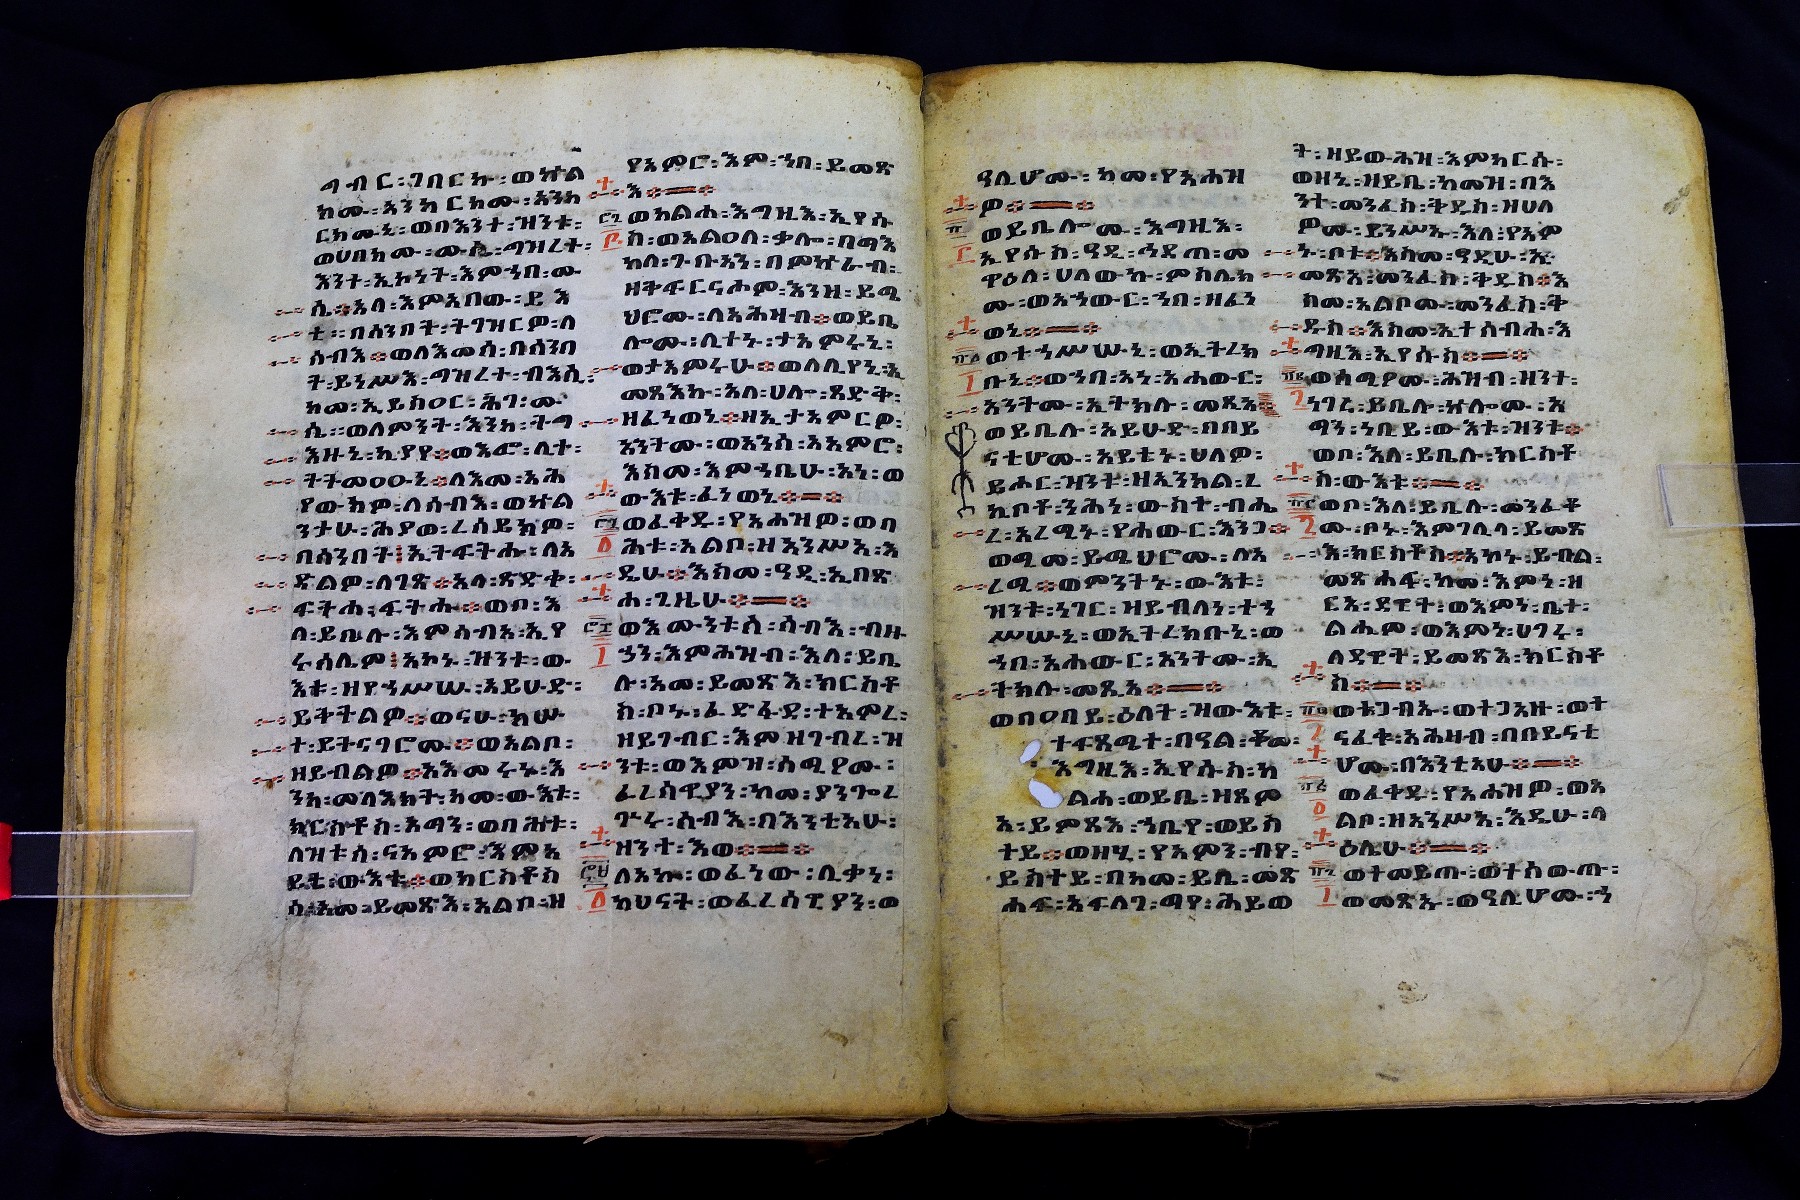 ግብር፡ገበርኩ፡ወኵል
ክሙ፡አንከርክሙ፡አንከ
ርክሙኒ፡ወበእንተ፡ዝንቱ፡
ወሀበክሙ፡ሙሴ፡ግዝረተ፡
እንተ፡ኢኮነት፡እምኀበ፡ሙ
ሴ፡አላ፡እምአበው፡ይእ
ቲ፡፡በሰንበት፡ትገዝርዎ፡ለ
ሰብእ፡ወለእመሰ፡በሰንበ
ት፡ይነሥእ፡ግዝረተ፡ብእሲ፡
ከመ፡ኢይክዐር፡ሕገ፡ሙ
ሴ፡፡ወለምንት፡እንከ፡ትግ
እዙኒ፡ኪያየ፡ወእፎ፡ሊተ፡
ትትመዐዑኒ፡ለእመ፡አሕ
የውክዎ፡ለሰብእ፡ወኵል
ንታሁ፡ሕያወ፡ረሰይክዎ፡
በሰንበት፡ኢትፍትሑ፡ለአ
ድልዎ፡ለገጽ፡አላ፡ጽድቀ፡
ፍትሐ፡ፍትሑ፡ወቦ፡እ
ለ፡ይቤሉ፡እምሰብአ፡ኢየ
ሩሳሌም፡አኮኑ፡ዝንቱ፡ው
እቱ፡ዘየኀሥሡ፡አይሁድ፡
ይቅትልዎ፡ወናሁ፡ክሡ
ተ፡ይትናገሮሙ፡ወአልቦ፡
ዘይብልዎ፡አእመሩኑ፡እ
ንከ፡መላእክት፡ከመ፡ውእቱ፡
ክርስቶስ፡እማን፡ወበሕቱ፡
ለዝቱሰ፡ናአምሮ፡እምአ
ይቴ፡ውእቱ፡ወክርስቶስ
ሰ፡እመ፡ይመጽእ፡አልቦ፡ዘ
የአምሮ፡እም፡ኀበ፡ይመጽ
እ፡
ወከልሐ፡እግዚእ፡ኢየሱ
ስ፡ወአልዐለ፡ቃሎ፡በማእ
ከለ፡ጉቡአን፡በምኵራብ፡
ዘቅፍርናሖም፡እንዘ፡ይሜ
ህሮሙ፡ለአሕዛብ፡ወይቤ
ሎሙ፡ሊተኑ፡ታአምሩኒ፡
ወታአምሩሁ፡ወለሊየኒ፡ኢ
መጻእኩ፡አላ፡ሀሎ፡ጻድቅ፡
ዘፈነወኒ፡ዘኢታአምርዎ፡
አንትሙ፡ወአንሰ፡አአምሮ፡
እስመ፡እምኀቤሁ፡አነ፡ወ
ውእቱ፡ፈነወኒ፡
ወፈቀዱ፡የአሐዝዎ፡ወበ
ሕቱ፡አልቦ፡ዘአንሥአ፡እ
ዴሁ፡እስመ፡ዓዲ፡ኢበጽ
ሐ፡ጊዜሁ፡
ወእሙንቱሰ፡ሰብእ፡ብዙ
ኃን፡እምሕዝብ፡እለ፡ይቤ
ሉ፡አመ፡ይመጽእ፡ክርስቶ
ስ፡ቦኑ፡ፈድፋደ፡ተአምረ፡
ዘይገብር፡እምዘገብረ፡ዝ
ንቱ፡ወእምዝ፡ሰሚዖሙ፡
ፈረሳዊያን፡ከመ፡ያንጐረ
ጕሩ፡ሰብእ፡በእንቲአሁ፡
ዘንተ፡እወ፡
ለአኩ፡ወፈነው፡ሊቃነ፡
ካህናት፡ወፈረሳዊያን፡ወ
ዓሊሆሙ፡ከመ፡የአሐዝ
ዎ፡
ወይቤሎሙ፡እግዚእ፡
ኢየሱስ፡ዓዲ፡ኅዳጠ፡መ
ዋዕለ፡ሀለውኩ፡ምስሌክ
ሙ፡ወአኀውር፡ኀበ፡ዘፈነ
ወኒ፡
ወተኀሥሡኒ፡ወኢትረክ
ቡኒ፡ወኀበ፡አነ፡አሐውር፡
አንትሙ፡ኢትክሉ፡መጺአ
ወይቤሉ፡አይሁድ፡በበይ
ናቲሆሙ፡አይቴኑ፡ሀለዎ፡
ይሖር፡ዝንቱ፡ዘኢንክል፡ረ
ኪቦቶ፡ንሕነ፡ውስተ፡ብሔ
ረ፡አረሚኑ፡የሐውር፡እንጋ፡
ወሚመ፡ይሜህሮሙ፡ለአ
ረሚ፡ወምንትኑ፡ውእቱ፡
ዝንቱ፡ነገር፡ዝይብለነ፡ተኀ
ሥሡኒ፡ወኢትረክቡኒ፡ወ
ኀበ፡አሐውር፡አንትሙ፡ኢ
ትክሉ፡መጺአ፡
ወበዐባይ፡ዕለት፡ዝውእቱ፡
ተፍጻሜተ፡በዓል፡ቆመ፡
እግዚእ፡ኢየሱስ፡ከ
ልሐ፡ወይቤ፡ዘጸም
አ፡ይምጻእ፡ኀቤየ፡ወይስ
ተይ፡ወዘሂ፡የአምን፡ብየ፡
ይስተይ፡በከመ፡ይቤ፡መጽ
ሐፍ፡አፍላገ፡ማየ፡ሕይወ
ት፡ዘይውሕዝ፡እምከርሡ፡
ወዘኒ፡ዘይቤ፡ከመዝ፡በእ
ንተ፡መንፈስ፡ቅዱስ፡ዘሀለ
ዎሙ፡ይንሥኡ፡እለ፡የአም
ኑ፡ቦቱ፡እስመ፡ዓዲሁ፡ኢ
መጽአ፡መንፈስ፡ቅዱስ፡እ
ስመ፡አልቦሙ፡መንፈስ፡ቅ
ዱስ፡እስመ፡ኢተሰብሐ፡እ
ግዚእ፡ኢየሱስ፡
ወሰሚዖሙ፡ሕዝብ፡ዘንተ፡
ነገረ፡ይቤሉ፡ሀሎሙ፡እ
ማን፡ነቢይ፡ውእቱ፡ዝንቱ፡
ወቦ፡እለ፡ይቤሉ፡ክርስቶ
ስ፡ውእቱ፡
ወቦ፡እለ፡ይቤሉ፡መንፈቆ
ሙ፡ቦኑ፡እምገሊላ፡ይመጽ
እ፡ክርስቶስ፡አኮኑ፡ይብል፡
መጽሐፍ፡ከመ፡እምነ፡ዘ
ርአ፡ዳዊት፡ወእምነ፡ቤተ፡
ልሔም፡ወእምነ፡ሀገሩ፡
ለዳዊት፡ይመጽእ፡ክርስቶ
ስ፡
ወቱጋብኡ፡ወተጋአዙ፡ወተ
ናፈቁ፡አሕዛብ፡በበይናቲ
ሆሙ፡በእንቲአሁ፡
ወፈቀዱ፡የአሐዝዎ፡ወአ
ልቦ፡ዘአንሥአ፡እዴሁ፡ላ
ዕሌሁ፡
ወተመይጡ፡ወተሰውጡ፡
ወመጽኡ፡ወዓሊሆሙ፡ኀ